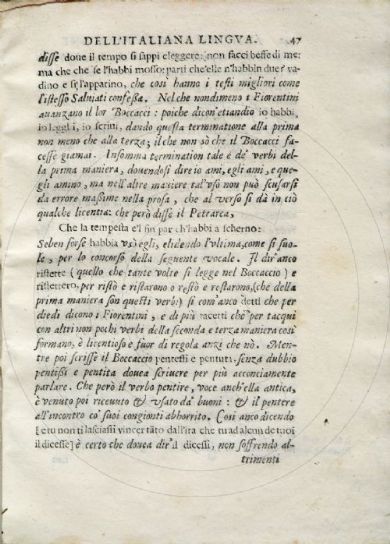 DELL'ITALIANA LINGVA. 47
disse doue il tempo si sappi eleggere: non facci besse di me:
ma che che se l'habbi mosso: parti ch'elle n'habbin due? va-
dino e se l'apparino, che così hanno i testi migliori come
l'istesso Saluiati confessa. Nel che nondimeno i Fiorentini
auanzano lor Boccacci: poiche dicon'etiandio io habbi,
io leggi, io scriui, dando questa terminatione alla prima
non meno che alla terza; il che non sò che il Boccacci fa-
cesse giamai. Insomma termination tale è de' verbi del-
la prima maniera, douendosi dire io ami, egli ami, e que-
gli amino, ma nell'altre maniere tal'vso non può scusarsi
da errore massime nella prosa, che al verso si dà in ciò
qualche licentia: che però disse il Petrarca,
Che la tempesta e'l fin par ch'habbi a scherno:
Seben forse habbia vsò egli, elidendo l'vltima, come si suo-
le, per lo concorso della seguente vocale. Il dir'anco
ristette (quello che tante volte si legge nel Boccaccio) e
ristettero, per ristò e ristarono o restò e restarono, (che della
prima maniera son questi verbi) si com'anco detti che per
diedi dicono i Fiorentini, e di più tacetti che per tacqui
con altri non pochi verbi della seconda e terza maniera così
formano, è licentioso e fuor di regola anzi che nò. Men-
tre poi scrisse il Boccaccio pentessi e pentuta, senza dubbio
pentissi e pentita douea scriuere per più acconciamente
parlare. Che però il verbo pentire, voce anch'ella antica,
è venuto poi riceuuto & vsato da' buoni: & il pentere
all'incontro co' suoi congionti abhorrito. Così anco dicendo
[e tu non ti lasciassi vincer tãto dall'ira che tu ad alcun de tuoi
il dicesse] è certo che douea dir' il dicessi, non soffrendo al-
trimenti